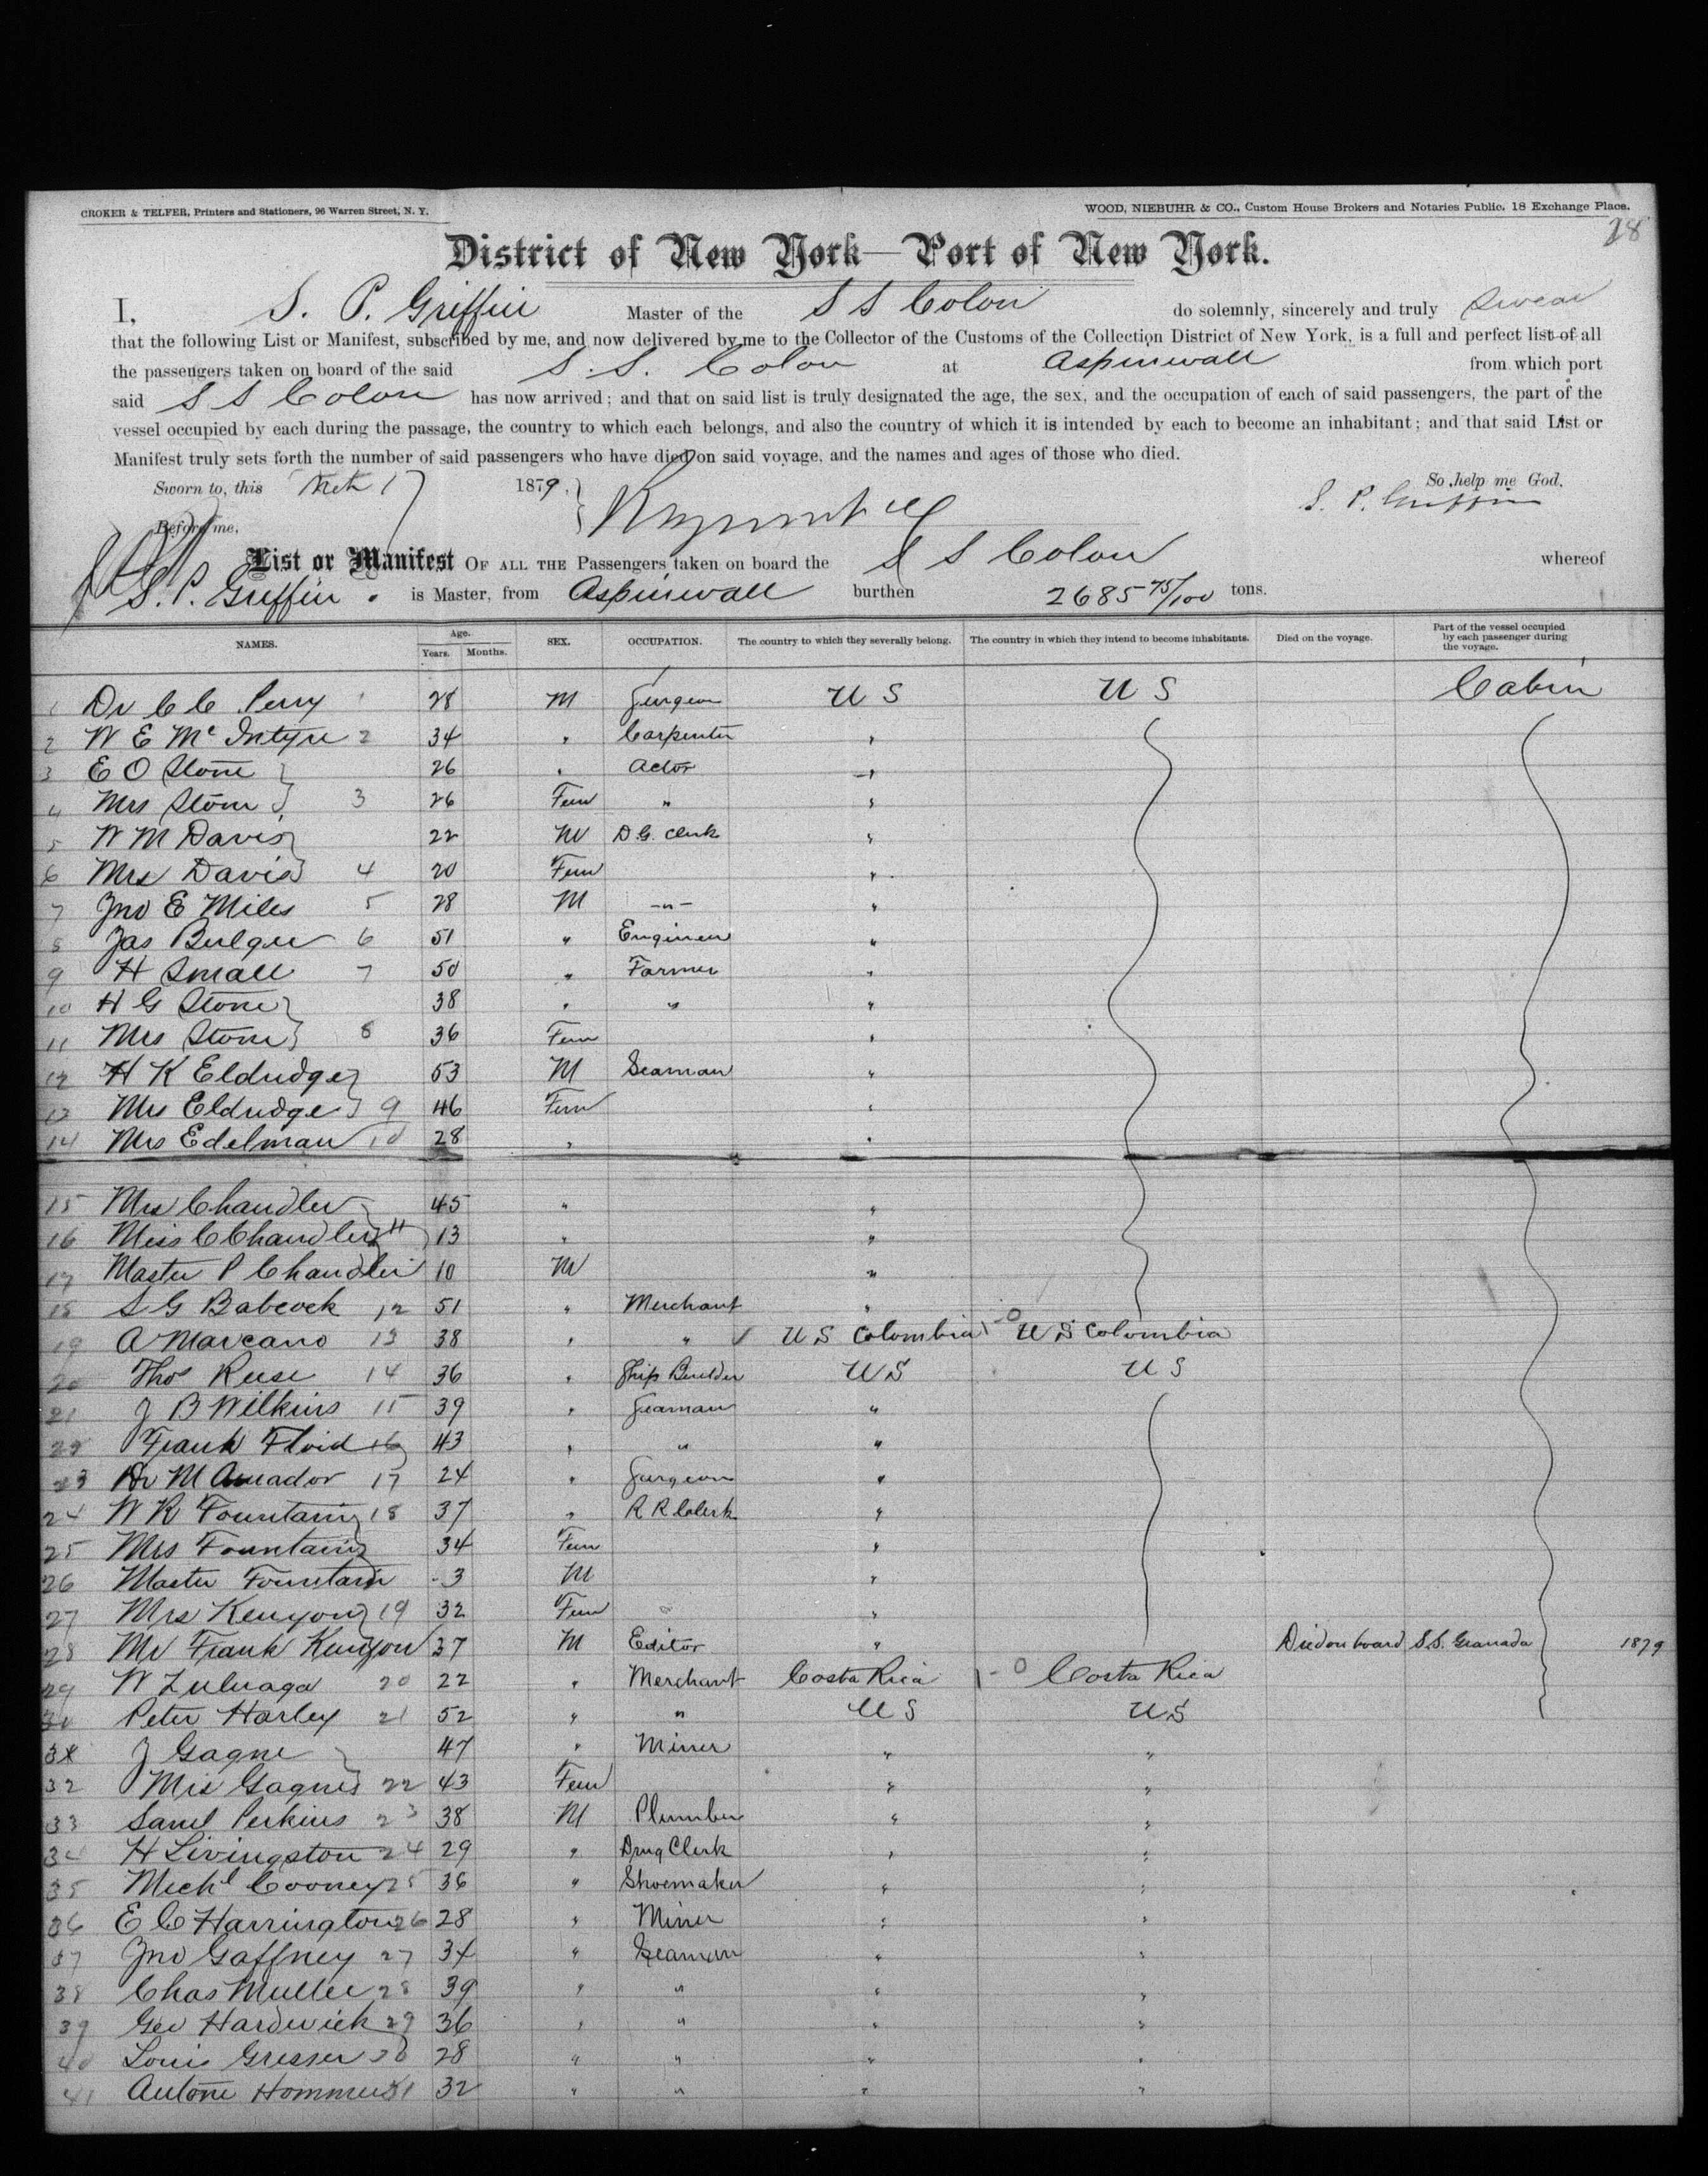 CROKER & TELFER, Printers and Stationers, 96 Warren Street, N. Y.
WOOD, NIEBUHR & CO., Custom House Brokers and Notaries Public, 18 Exchange Place.
28
District of New York—Port of New York.
I, S. P. Griffin Master of the S S Colon do solemnly, sincerely and truly swear
that the following List or Manifest, subscribed by me, and now delivered by me to the Collector of the Customs of the Collection District of New York, is a full and perfect list of all
the passengers taken on board of the said S. S. Colon at Aspinwall from which port
said S S Colon has now arrived; and that on said list is truly designated the age, the sex, and the occupation of each of said passengers, the part of the
vessel occupied by each during the passage, the country to which each belongs, and also the country of which it is intended by each to become an inhabitant; and that said List or
Manifest truly sets forth the number of said passengers who have died on said voyage, and the names and ages of those who died.
Sworn to, this Mch 17 1879. So help me God,
Before me, S. P. Griffin
List or Manifest OF ALL THE Passengers taken on board the S S Colon whereof
S. P. Griffin is Master, from Aspinwall burthen 2685 75/100 tons.
NAMES. Age. Years. Months. SEX. OCCUPATION. The country to which they severally belong. The country in which they intend to become inhabitants. Died on the voyage. Part of the vessel occupied by each passenger during the voyage.
1 Dr C C Perry 1 28 M Surgeon U S U S Cabin
2 W E Mc Intyre 2 34 " Carpenter "
3 E O Stone } 26 " Actor "
4 Mrs Stone } 3 26 Fem " "
5 W M Davis } 22 M D.G. Clerk "
6 Mrs Davis } 4 20 Fem "
7 Jno E Miles 5 28 M -"- "
8 Jas Bulger 6 51 " Engineer "
9 H Small 7 50 " Farmer "
10 H G Stone } 38 " " "
11 Mrs Stone } 8 36 Fem "
12 H K Eldridge } 53 M Seaman "
13 Mrs Eldridge } 9 46 Fem "
14 Mrs Edelman 10 28 " "
15 Mrs Chandler 45 " "
16 Miss C Chandler } 11 13 " "
17 Master P Chandler 10 M "
18 S G Babcock 12 51 " Merchant "
19 A Marcano 13 38 " " U S Colombia U S Colombia
20 Thos Reese 14 36 " Ship Builder U S U S
21 J B Wilkins 15 39 " Seaman "
22 Frank Floid 16 43 " " "
23 Dr M Amador 17 24 " Surgeon "
24 W R Fountain } 18 37 " R R Clerk "
25 Mrs Fountain } 34 Fem "
26 Master Fountain 3 M "
27 Mrs Kenyon } 19 32 Fem "
28 Mr Frank Kenyon 37 M Editor " Died on board S.S. Granada 1879
29 W Zuluaga 20 22 " Merchant Costa Rica Costa Rica
30 Peter Harley 21 52 " " U S U S
31 J Gagne } 47 " Miner " "
32 Mrs Gagne } 22 43 Fem " "
33 Saml Perkins 23 38 M Plumber " "
34 H Livingston 24 29 " Drug Clerk " "
35 Michl Cooney 25 36 " Shoemaker " "
36 E C Harrington 26 28 " Miner " "
37 Jno Gaffney 27 34 " Seaman " "
38 Chas Muller 28 39 " " " "
39 Geo Hardwick 29 36 " " " "
40 Louis Gresser 30 28 " " " "
41 Antone 31 32 " " " "